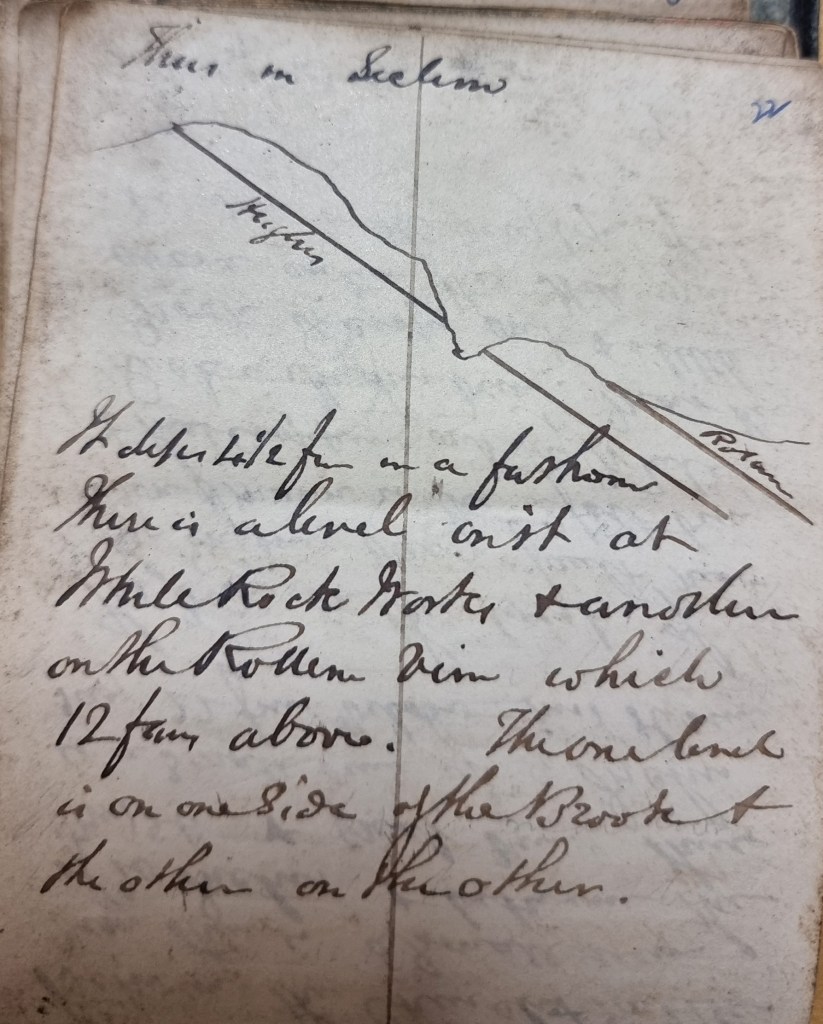 Thus in Section
22
Hughes
Rotten
It dips 4 1/2 in a fathom
There is a level on it at
While Rock Works & another
on the Rotten Vein which
12 fams above. The one level
is on one Side of the Brook &
the other on the other.